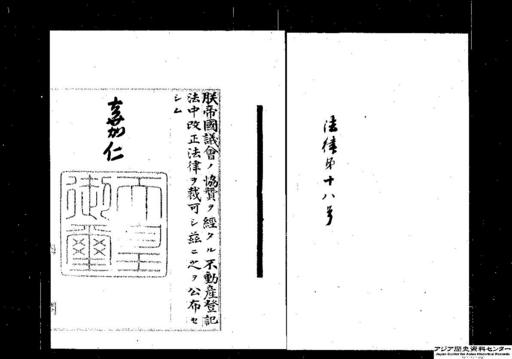 法律第十八号
朕帝國議會ノ協贊ヲ經タル不動產登記
法中改正法律ヲ裁可シ茲ニ之ヲ公布セ
シム
嘉仁
天皇
御璽
アジア歴史資料センター
Japan Center for Asian Historical Records